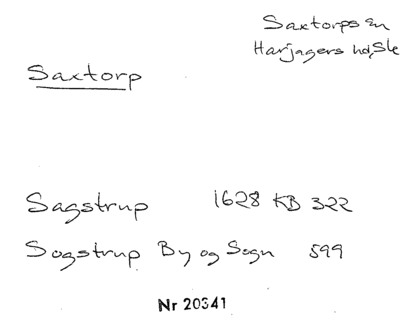 Saxtorps sn
Harjagers hd, Sk
Saxtorp
Sagstrup 1628 KB 322
Sogstrup By og Sogn 599
Nr 20341